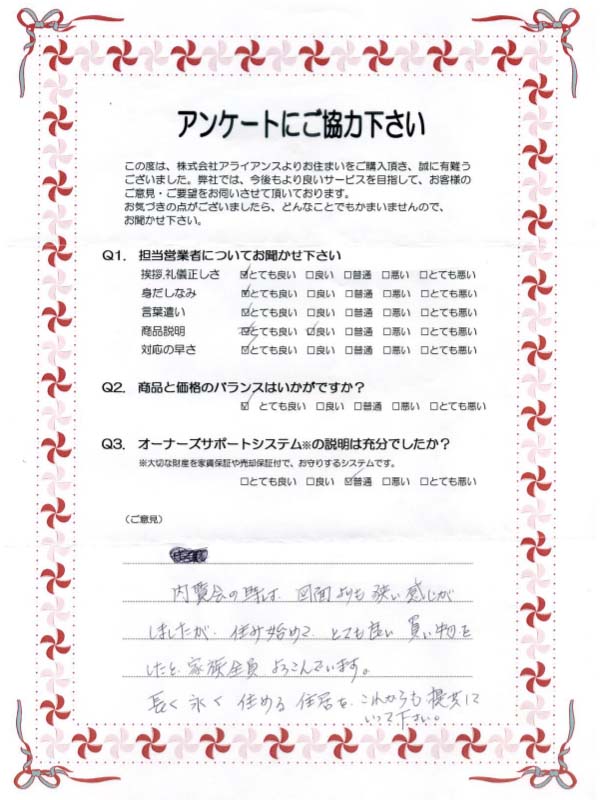 アンケートにご協力下さい
この度は、株式会社アライアンスよりお住まいをご購入頂き、誠に有難う
ございました。弊社では、今後もより良いサービスを目指して、お客様の
ご意見・ご要望をお伺いさせて頂いております。
お気づきの点がございましたら、どんなことでもかまいませんので、
お聞かせ下さい。
Q1. 担当営業者についてお聞かせ下さい
挨拶,礼儀正しさ ☑とても良い □良い □普通 □悪い □とても悪い
身だしなみ ☑とても良い □良い □普通 □悪い □とても悪い
言葉遣い ☑とても良い □良い □普通 □悪い □とても悪い
商品説明 ☑とても良い ☑良い □普通 □悪い □とても悪い
対応の早さ ☑とても良い □良い □普通 □悪い □とても悪い
Q2. 商品と価格のバランスはいかがですか？
☑ とても良い □良い □普通 □悪い □とても悪い
Q3. オーナーズサポートシステム※の説明は充分でしたか？
※大切な財産を家賃保証や売却保証付で、お守りするシステムです。
□とても良い □良い ☑普通 □悪い □とても悪い
（ご意見）
内覧会の時は、図面よりも狭い感じが
しましたが、住み始めて、とても良い買い物を
したと、家族全員よろこんでいます。
長く永く住める住居を、これからも提供して
いって下さい。